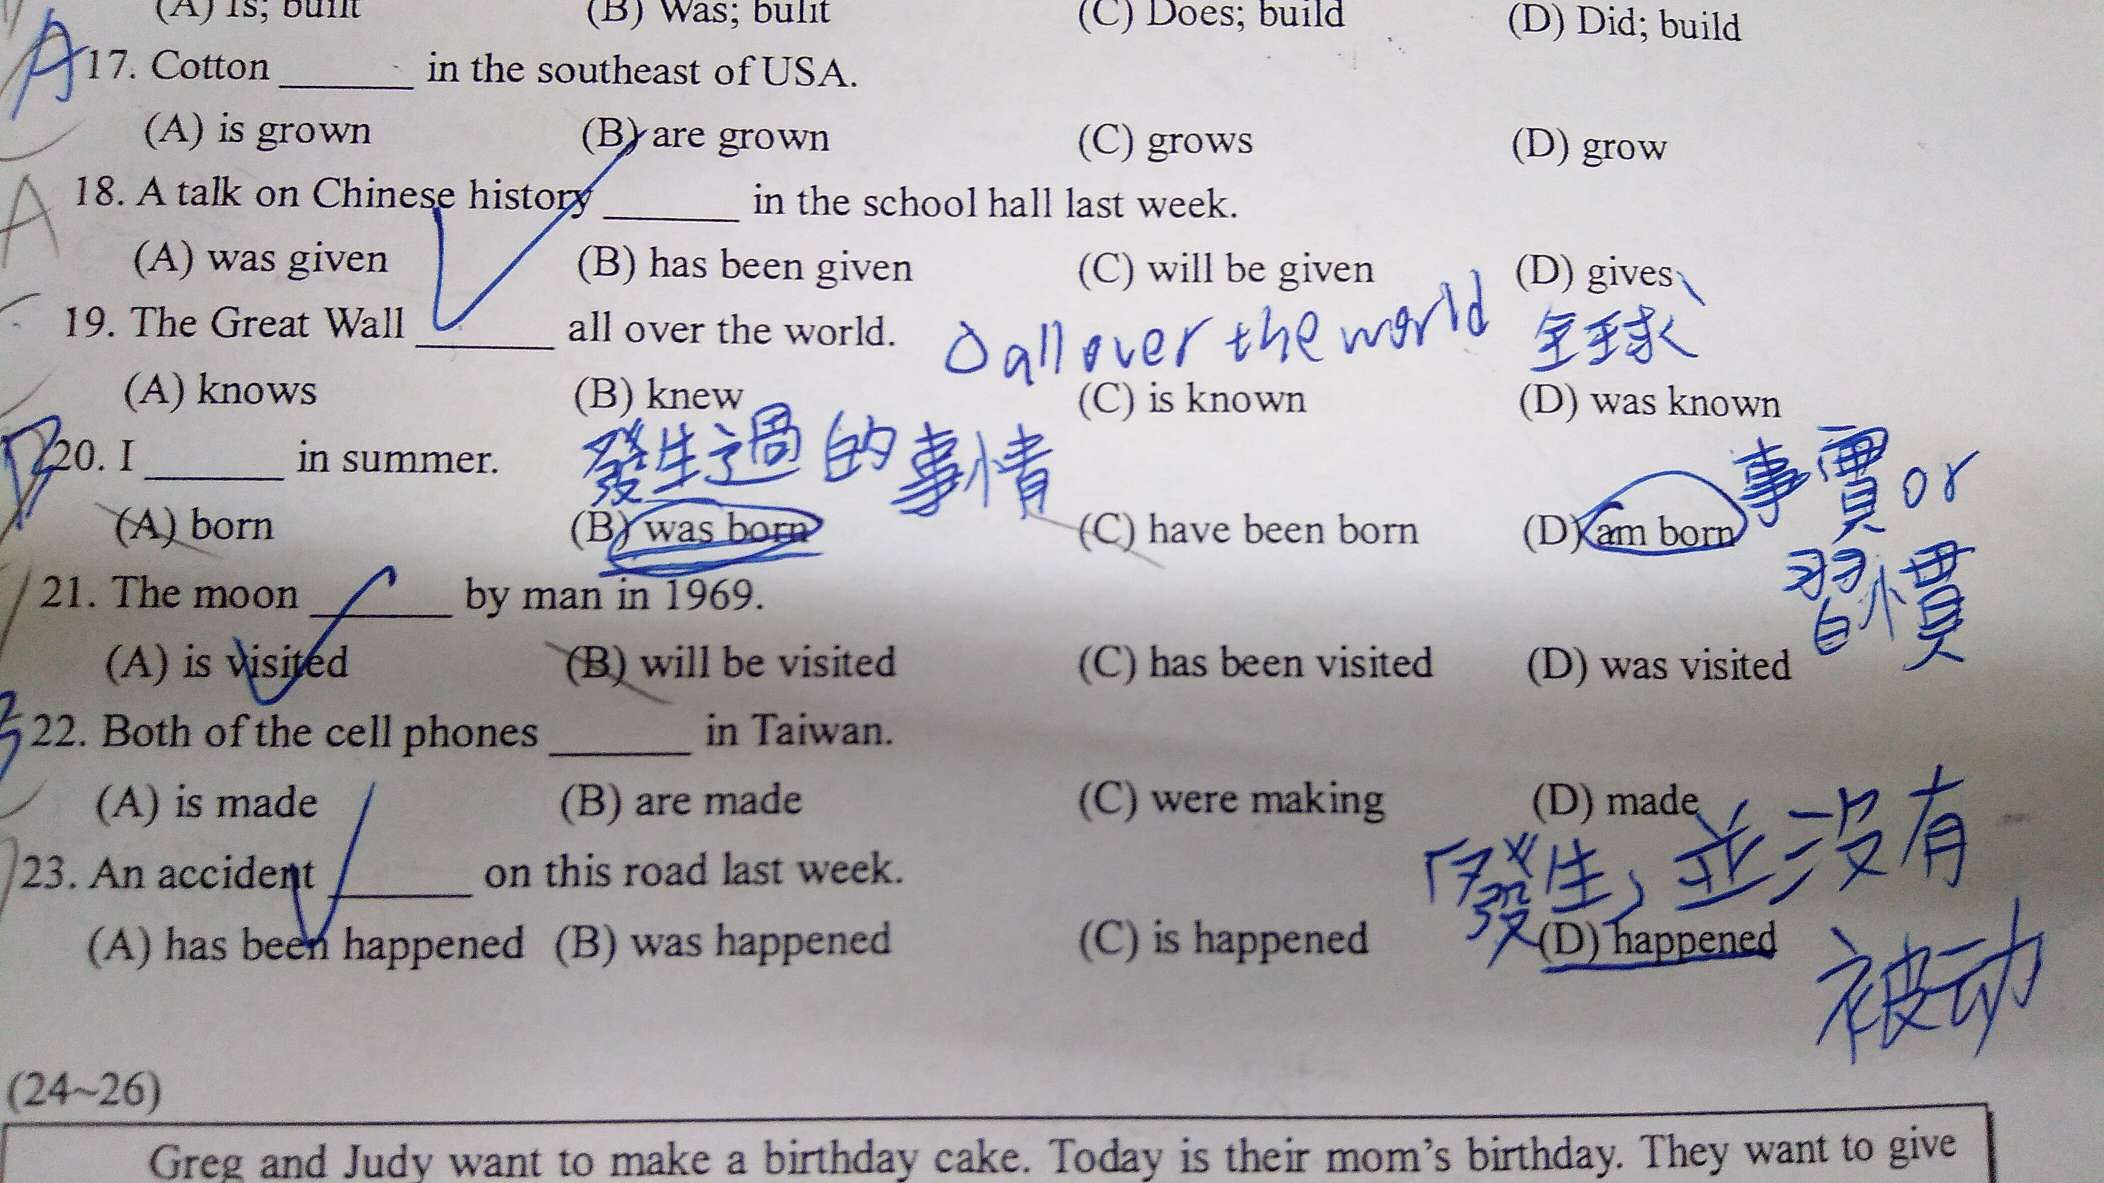 (A) Is; built (B) Was; bulit (C) Does; build (D) Did; build
A 17. Cotton ______ in the southeast of USA.
(A) is grown (B) are grown (C) grows (D) grow
A 18. A talk on Chinese history ______ in the school hall last week.
(A) was given (B) has been given (C) will be given (D) gives
19. The Great Wall ______ all over the world. all over the world 全球
(A) knows (B) knew (C) is known (D) was known
20. I ______ in summer. 發生過的事情 事實or
(A) born (B) was born (C) have been born (D) am born
習慣
21. The moon ______ by man in 1969.
(A) is visited (B) will be visited (C) has been visited (D) was visited
22. Both of the cell phones ______ in Taiwan.
(A) is made (B) are made (C) were making (D) made
「發生」並没有
23. An accident ______ on this road last week.
(A) has been happened (B) was happened (C) is happened (D) happened
被动
(24~26)
Greg and Judy want to make a birthday cake. Today is their mom's birthday. They want to give